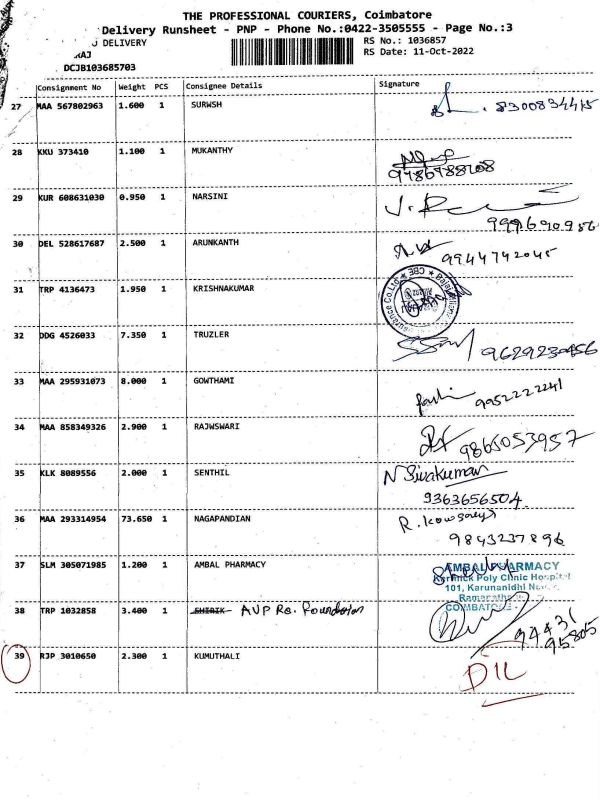 THE PROFESSIONAL COURIERS, Coimbatore
Delivery Runsheet - PNP - Phone No.:0422-3505555 - Page No.:3
DELIVERY
RS No.: 1036857
RAJ
RS Date: 11-Oct-2022
DCJB103685703
Consignment No Weight PCS Consignee Details Signature
27 MAA 567802963 1.600 1 SURWSH 8300834415
28 KKU 373410 1.100 1 MUKANTHY
29 KUR 608631030 0.950 1 NARSINI
30 DEL 528617687 2.500 1 ARUNKANTH 9944742045
31 TRP 4136473 1.950 1 KRISHNAKUMAR
32 DDG 4526033 7.350 1 TRUZLER
33 MAA 295931073 8.000 1 GOWTHAMI 9952222241
34 MAA 858349326 2.900 1 RAJWSWARI 9865053957
35 KLK 8089556 2.000 1 SENTHIL N Sivakumar
9363656504
36 MAA 293314954 73.650 1 NAGAPANDIAN R. Kowsalya
9843237896
37 SLM 305071985 1.200 1 AMBAL PHARMACY AMBAL PHARMACY
Poly Clinic Hospital
101, Karunanidhi
COIMBATORE
38 TRP 1032858 3.400 1 SHIRIK AVP Rs. Foundation
94431
95805
39 RJP 3010650 2.300 1 KUMUTHALI DIL